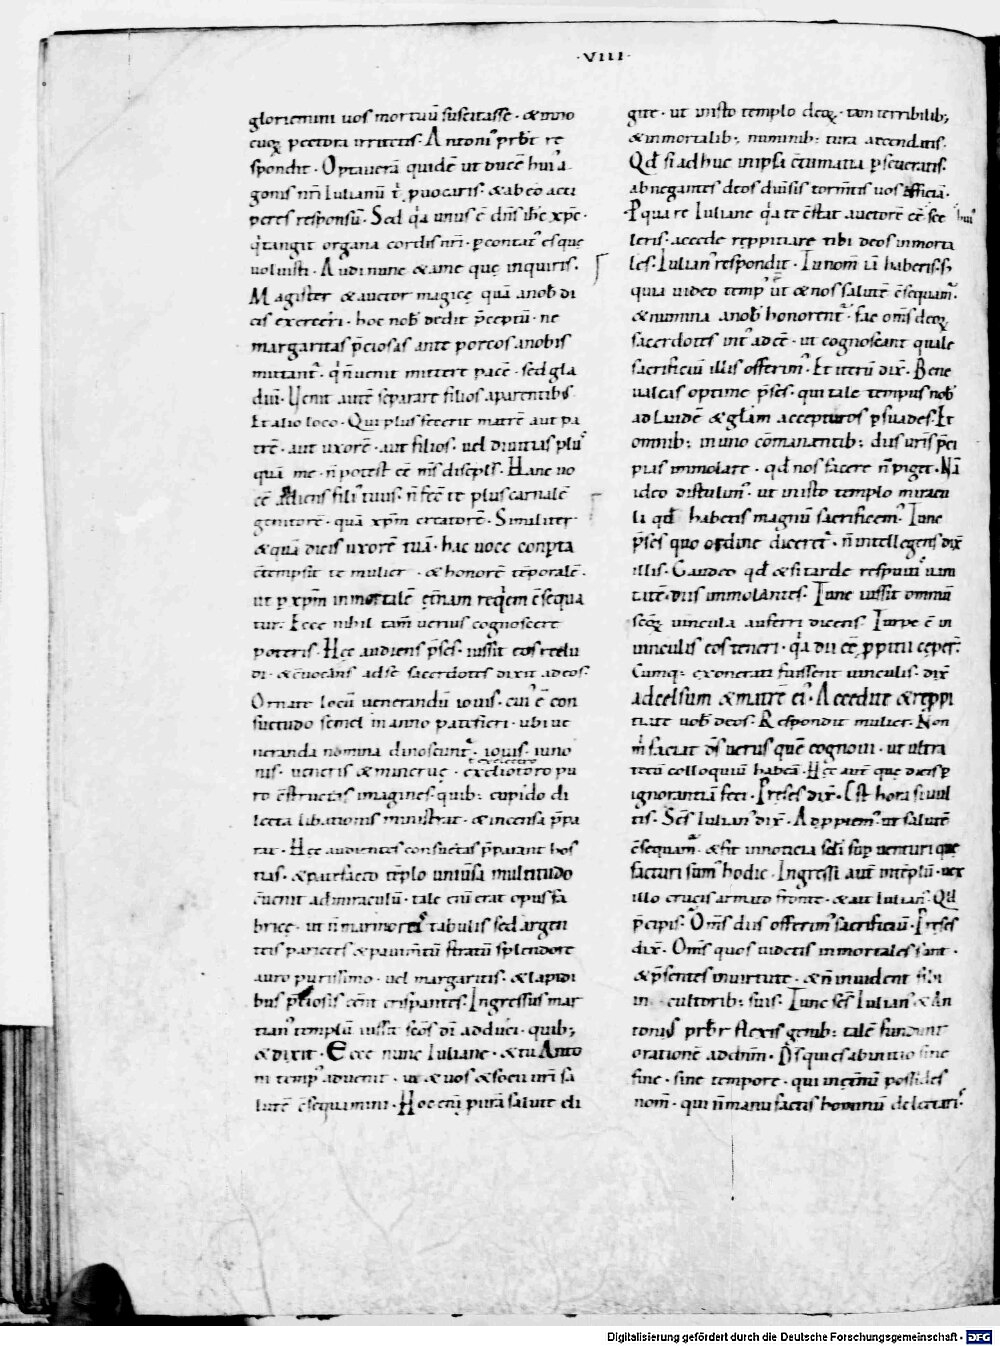 ·VIII·
gloriemini uos mortuū suscitasse · & in no
cuoꝝ pectora irritetis · Antoni᾽ prb̄r re
spondit · Optauerā quidē ut ducē hui᾽ a
gonis nr̄i Iulianū ı̓ ꝓuocaris · & ab eo acci
peres responsū · Sed qͥa unus ē dn̄s ih̄c xp̄c ·
qͥ tangit organa cordis nr̄i · ꝑcontat᾽ es que
uoluisti · Audi nunc & a me quę inquiris ·
Magister & auctor magicę quā a nob̄ di
cis exerceri · hoc nob̄ dedit p̄ceptū · ne
margaritas p̄ciosas ante porcos a nobis
mittant᾽ · qͥ n̄ uenit mittere pacē · sed gla
diū · Uenit autē separare filios a parentib;
Et alio loco · Qui plus fecerit matrē aut pa
trē · aut uxorē · aut filios · uel diuitias plus
quā me · n̄ potest eē m̄s discipls̄ · Hanc uo
cē audiens fili᾽ tuus · n̄ fec̄ te plus carnalē
genitorē · quā xp̄m creatorē · Similiter
& quā dicis uxorē tuā · hac uoce conpta
c̄tempsit te mulier · & honorē tēporalē ·
ut ꝑ xp̄m inmortalē et̄nam req̇em c̄sequa
tur · Ecce nihil tam̄ uerius cognoscere
poteris · Hęc audiens p̄ses · iussit eos reclu
di · & c̄uocans ad se sacerdotes dixit ad eos ·
Ornate locū uenerandū iouis · cui᾽ ē con
suetudo semel in anno patefieri · ubi ue
neranda nomina dinoscunt᾽ · iouis · iuno
nis · ueneris & mineruę · ex eliotoro pu
ro c̄structas imagines · quib; cupido di
lecta libationis ministrat · & incensa p̄pa
rat · Hęc audientes consuetas p̄parant hos
tias · & patefacto tēplo uniūsa multitudo
c̄uenit ad miraculū · tale eni᾽ erat opus fa
bricę · ut n̄ marmoreis tabulis sed argen
teis parietes & pauimtū stratū splendore
auro purissimo · uel margaritis · & lapidi
bus p̄tiosis cern̄t crispantes · Ingressus mar
tian᾽ templū iussit sc̄os dī adduci · quib;
& dixit · Ecce nunc Iuliane · & tu Anto
ni temp᾽ aduenit · ut & uos & socii uri sa
lutē c̄sequimini · Hoc eni᾽ pura salute eli
gite · ut in isto templo deoꝝ · tam terribilib;
& inmortalib; numinib; tura accendatis ·
Qd̄ si adhuc in ipsa c̄tumatia ꝑseueratis ·
abnegantes deos diūsis torm̄tis uos afficiā ·
P qua re Iuliane qͥa te c̄stat auctorē eē sce
hui᾽
leris · accede reppitiare tibi deos inmorta
les · Iulian᾽ respondit · Iu nom̄ iā haberis · s;
quia uideo temp᾽ ut & nos salutē c̄sequam᾽ ·
& numina a nob̄ honorent᾽ · fac om̄s deoꝝ
sacerdotes int᾽ adeē · ut cognoscant quale
sacrificiū illis offerim᾽ · Et iterū dix̄ · Bene
ualeas optime p̄ses · qui tale tempus nob̄
ad laudē & glam̄ accepturos ꝑsuades · Et
omnib; in uno cōmanentib; diis uris p̄ci
piis immolare · qd̄ nos facere n̄ piget · Nā
ideo distulim᾽ · ut in isto templo miracu
li qd̄ habetis magnū sacrificem᾽ · Tunc
p̄ses quo ordine diceret᾽ · n̄ intellegens dix̄
illis · Gaudeo qd̄ & si tarde respuim᾽ uani
tatē · diis immolantes · Tunc iussit omniū
sc̄oꝝ uincula auferri dicens · Turpe ē in
uinculis eos teneri · qͥa dii eē ꝓpitii ceper᾽ ·
Cumq; exonerati fuissent uinculis · dix̄
ad celsum & matrē ei᾽ · Accedite & reppi
tiate uob̄ deos · Respondit mulier · Non
m̄ faciat ds̄ uerus quē cognoui · ut ultra
tecū colloquiū habeā · Hęc aut̄ que dicis ꝑ
ignorantiā feci · Preses dix̄ · Est hora si uul
tis · Sc̄s Iulian᾽ dix̄ · Ad ꝓꝑem᾽ ut salutē
c̄sequam᾽ · & fit innoticia scl̄i suꝑuenturi que
facturi sum᾽ hodie · Ingressi aut̄ intēplū · uex
illo crucis armato fronte · & ait Iulian᾽ · Qd̄
p̄cipis · Om̄s diis offerim᾽ sacrificiū · Preses
dix̄ · Om̄s quos uidetis inmortales sunt ·
& p̄sentes in uirtute · & n̄ inuident sibi
in cultorib; suis · Tunc sc̄s Iulian᾽ & An
toni᾽ prb̄r flexis genib; talē fundunt
orationē ad dnm̄ · Ds̄ qui es ab initio sine
fine · sine tempore · qui inet̄nū possides
nom̄ · qui n̄ manu factis hominū delectaris